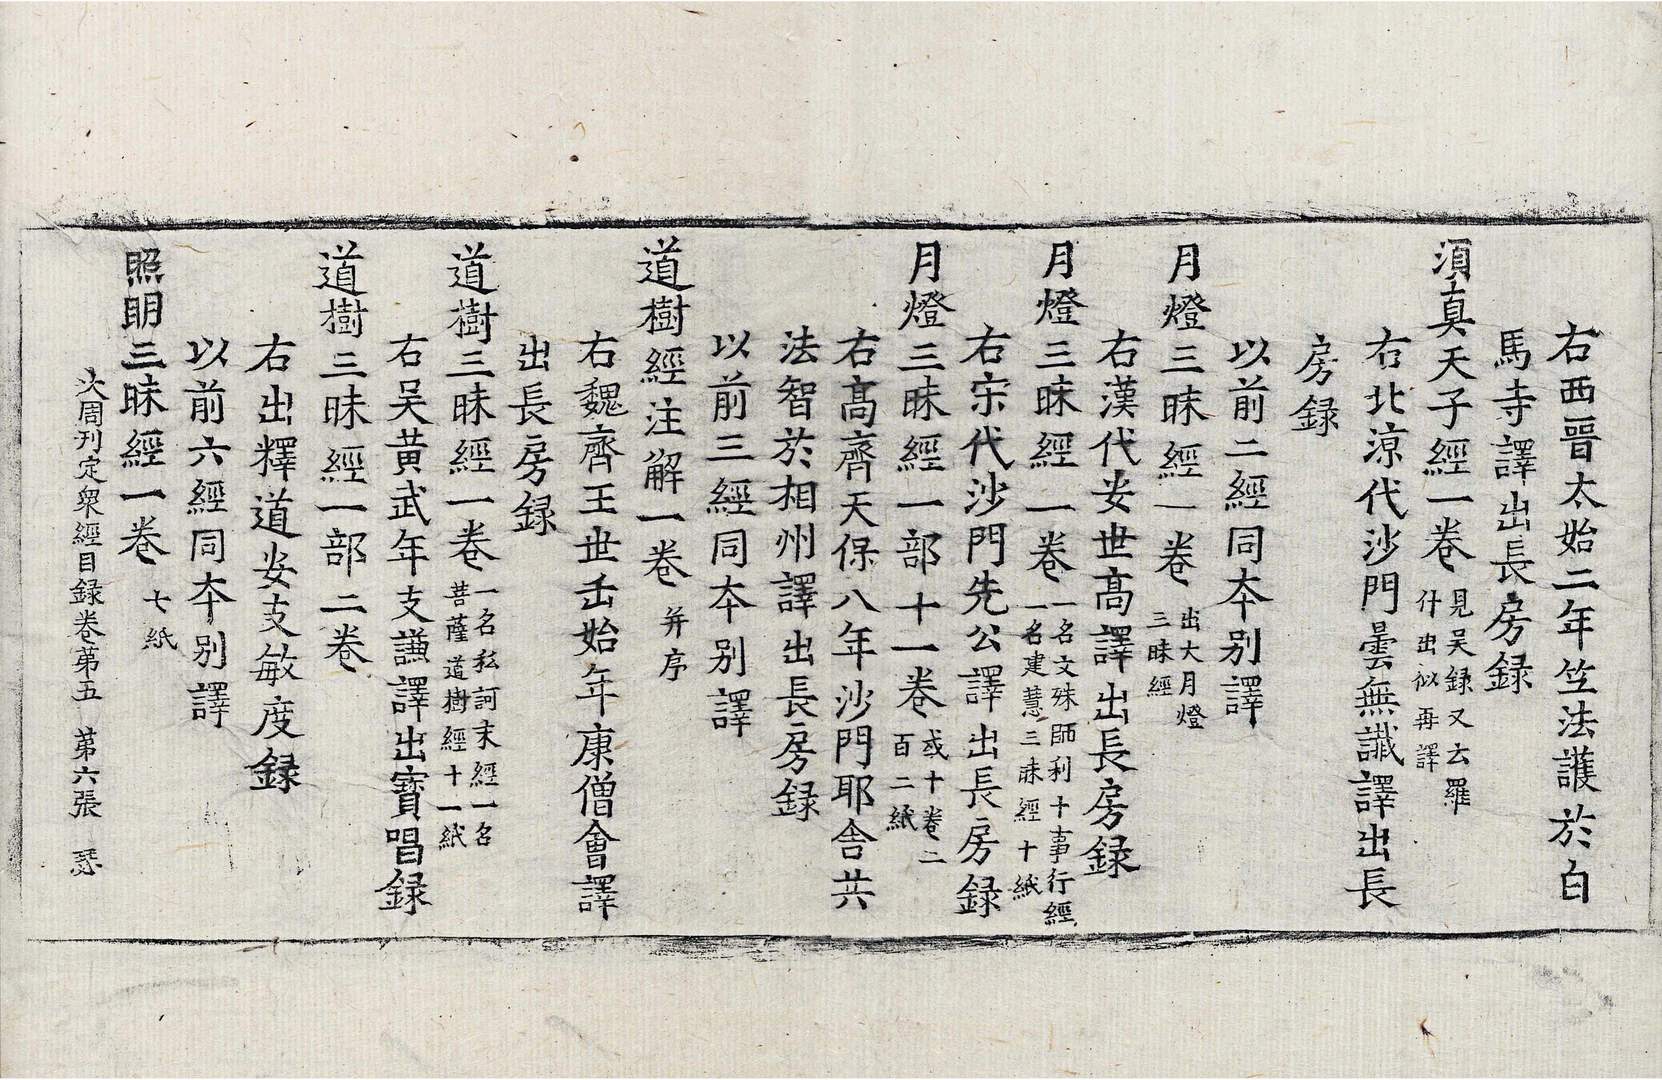 右西晉太始二年竺法護於白
馬寺譯出長房録
湏真天子經一卷 見吴録又云羅什出似再譯
右北涼代沙門曇無讖譯出長
房録
以前二經同夲别譯
月燈三昧經一卷 出大月燈三昧經
右漢代安世髙譯出長房録
月燈三昧經一卷 一名文殊師利十事行經一名建慧三昧經十紙
右宋代沙門先公譯出長房録
月燈三昧經一部十一卷 或十卷二百二紙
右髙齊天保八年沙門耶舎共
法智於相州譯出長房録
以前三經同夲别譯
道樹經注解一卷 并序
右魏齊王世𠙖始年康僧會譯
出長房録
道樹三昧經一卷 一名私訶末經一名菩薩道樹經十一紙
右吴黄武年支謙譯出寶唱録
道樹三昧經一部二卷
右出釋道安支敏度録
以前六經同夲别譯
照明三昧經一卷 七紙
大周刊定衆經目録卷苐五 苐六張 瑟